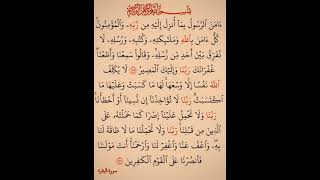 بِسْمِ اللَّهِ الرَّحْمَٰنِ الرَّحِيمِ
ءَامَنَ ٱلرَّسُولُ بِمَآ أُنزِلَ إِلَيْهِ مِن رَّبِّهِۦ وَٱلْمُؤْمِنُونَۚ
كُلٌّ ءَامَنَ بِٱللَّهِ وَمَلَٰٓئِكَتِهِۦ وَكُتُبِهِۦ وَرُسُلِهِۦ لَا
نُفَرِّقُ بَيْنَ أَحَدٍ مِّن رُّسُلِهِۦۚ وَقَالُوا۟ سَمِعْنَا وَأَطَعْنَاۖ
غُفْرَانَكَ رَبَّنَا وَإِلَيْكَ ٱلْمَصِيرُ ۝ لَا يُكَلِّفُ
ٱللَّهُ نَفْسًا إِلَّا وُسْعَهَاۚ لَهَا مَا كَسَبَتْ وَعَلَيْهَا مَا
ٱكْتَسَبَتْۗ رَبَّنَا لَا تُؤَاخِذْنَآ إِن نَّسِينَآ أَوْ أَخْطَأْنَاۚ
رَبَّنَا وَلَا تَحْمِلْ عَلَيْنَآ إِصْرًا كَمَا حَمَلْتَهُۥ عَلَى
ٱلَّذِينَ مِن قَبْلِنَاۚ رَبَّنَا وَلَا تُحَمِّلْنَا مَا لَا طَاقَةَ لَنَا
بِهِۦۖ وَٱعْفُ عَنَّا وَٱغْفِرْ لَنَا وَٱرْحَمْنَآۚ أَنتَ مَوْلَىٰنَا
فَٱنصُرْنَا عَلَى ٱلْقَوْمِ ٱلْكَٰفِرِينَ ۝
سورة البقرة